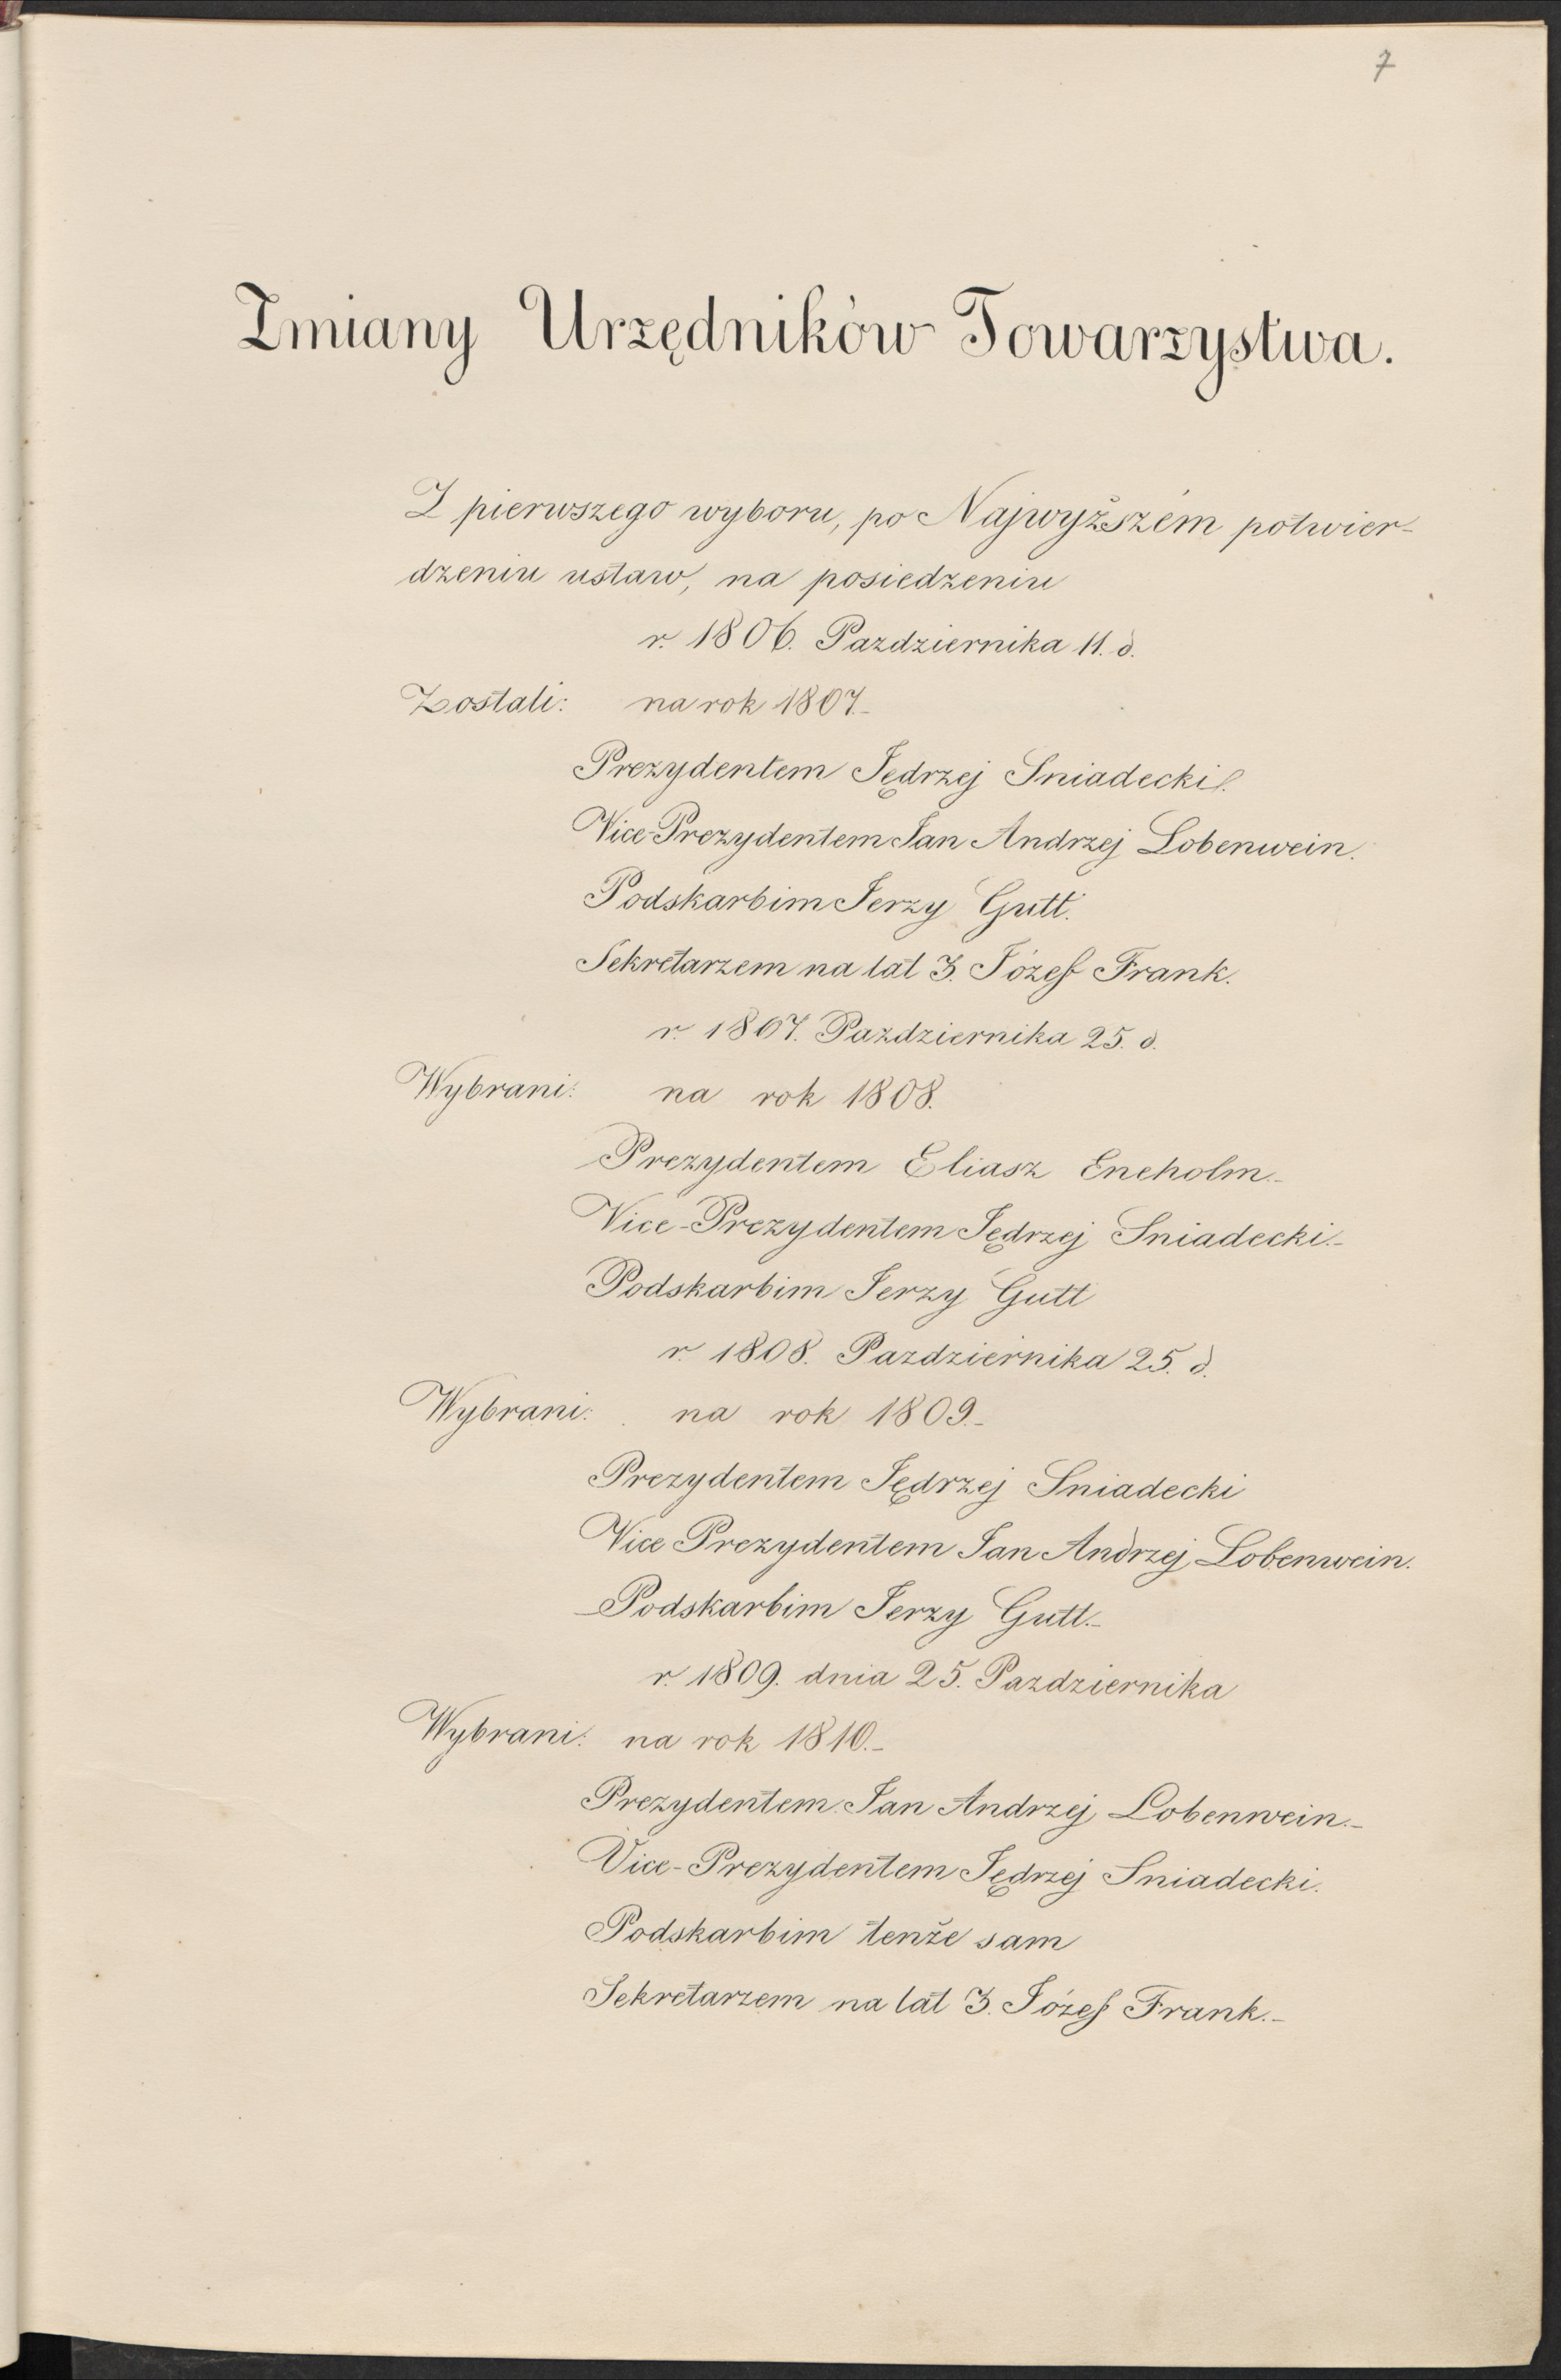 7
Zmiany Urzędników Towarzystwa.
Z pierwszego wyboru, po Najwyższém potwier-
dzeniu ustaw, na posiedzeniu
r. 1806. Pazdziernika 11. d.
Zostali: na rok 1807.-
Prezydentem Jędrzej Sniadecki.
Vice-Prezydentem Jan Andrzej Lobenwein.
Podskarbim Jerzy Gutt.
Sekretarzem na lat 3. Józef Frank.
r. 1807. Pazdziernika 25. d.
Wybrani: na rok 1808.
Prezydentem Eliasz Eneholm.-
Vice-Prezydentem Jędrzej Sniadecki.-
Podskarbim Jerzy Gutt
r. 1808. Pazdziernika 25. d.
Wybrani: na rok 1809.-
Prezydentem Jędrzej Sniadecki
Vice Prezydentem Jan Andrzej Lobenwein.
Podskarbim Jerzy Gutt.-
r. 1809. dnia 25. Pazdziernika
Wybrani: na rok 1810.-
Prezydentem Jan Andrzej Lobenwein.-
Vice-Prezydentem Jędrzej Sniadecki.
Podskarbim tenże sam
Sekretarzem na lat 3. Józef Frank.-